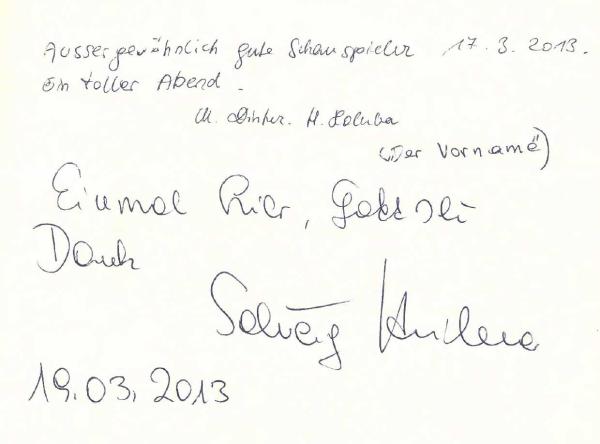 Aussergewöhnlich gute Schauspieler 17.3.2013.
Ein toller Abend.
M. H.
(Der Vorname)
Einmal hier, Gott sei
Dank
Solveig
19.03.2013